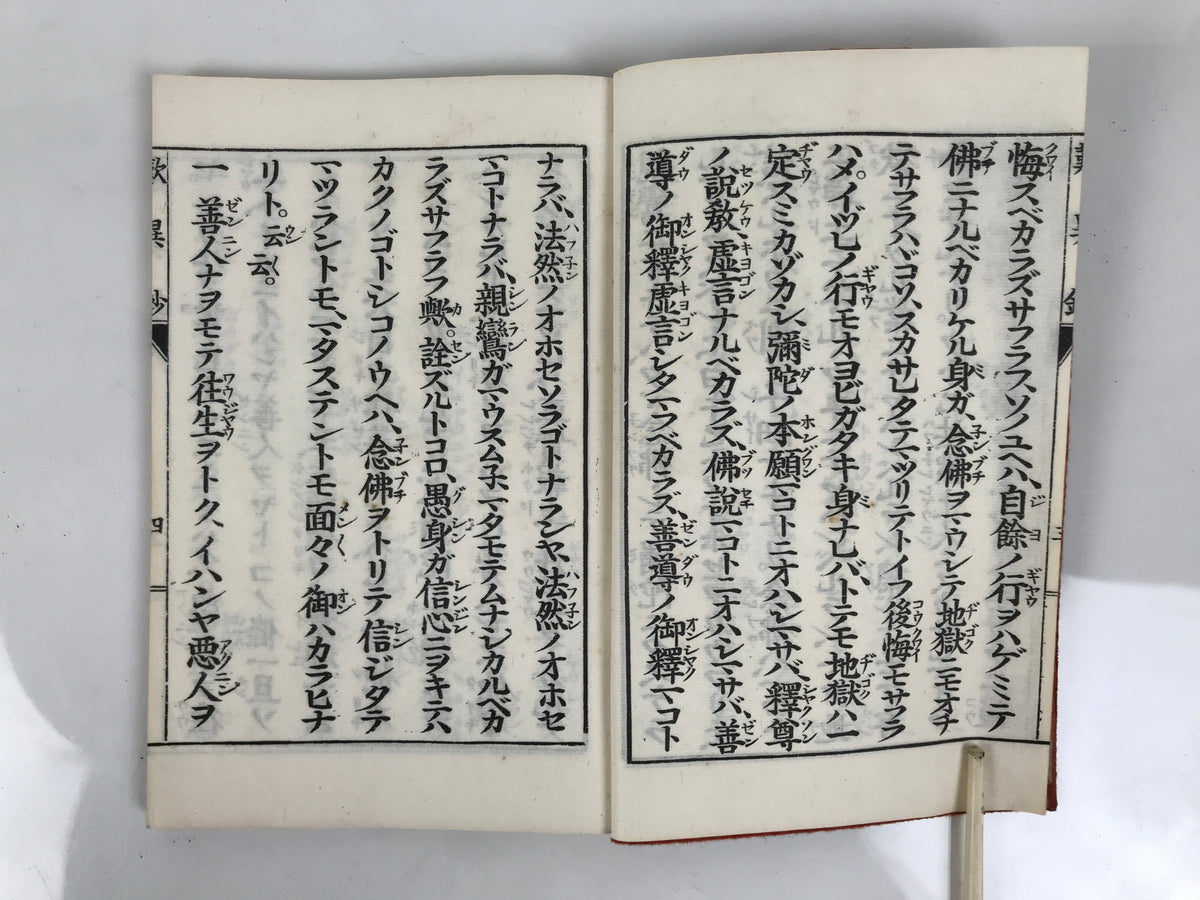 悔スベカラズサフラフ、ソノユヘハ、自餘ノ行ヲハゲミテ
佛ニナルベカリケル身ガ、念佛ヲマウシテ地獄ニモオチ
テサフラハヾコソ、スカサレタテマツリテトイフ後悔モサフラ
ハメ。イヅレノ行モオヨビガタキ身ナレバ、トテモ地獄ハ一
定スミカゾカシ、彌陀ノ本願マコトニオハシマサバ、釋尊
ノ説敎、虚言ナルベカラズ、佛說マコトニオハシマサバ、善
導ノ御釋虚言シタマフベカラズ、善導ノ御釋マコト
ナラバ、法然ノオホセソラゴトナランヤ、法然ノオホセ
マコトナラバ、親鸞ガマウスムネ、マタモテムナシカルベカ
ラズサフラフ歟。詮ズルトコロ、愚身ガ信心ニヲキテハ
カクノゴトシコノウヘハ、念佛ヲトリテ信ジタテ
マツラントモ、マタステントモ面々ノ御ハカラヒナ
リト。云云。
一 善人ナヲモテ往生ヲトク、イハンヤ悪人ヲ
歎異鈔 四